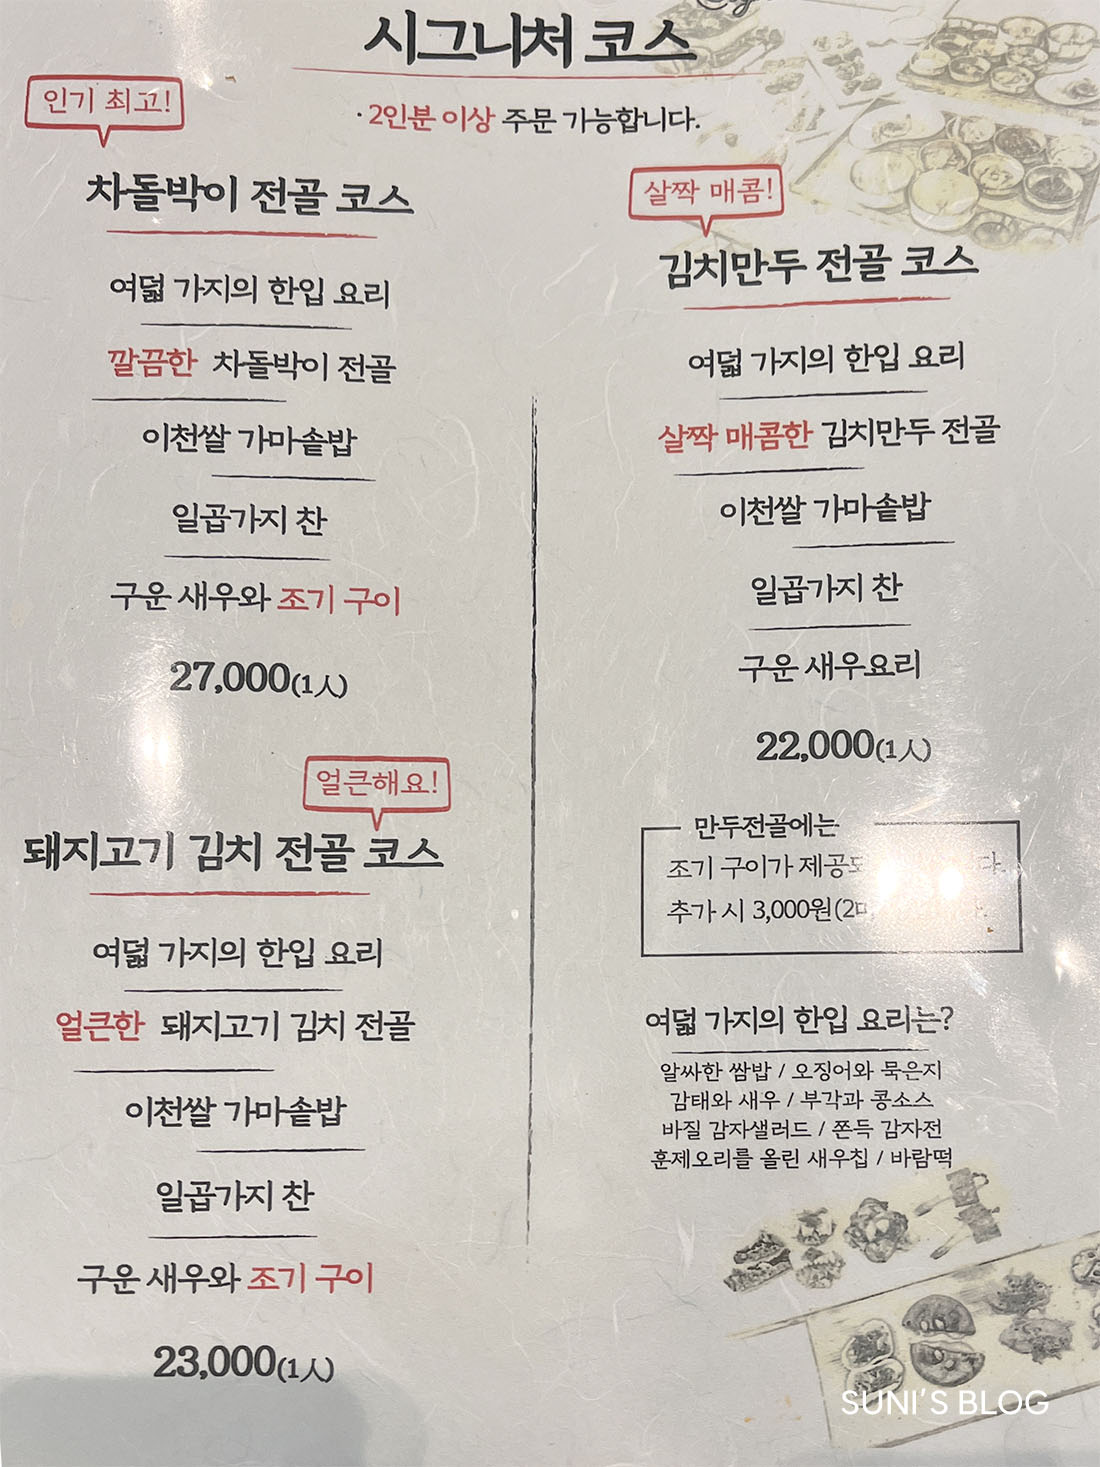 시그니처 코스
· 2인분 이상 주문 가능합니다.
인기 최고!
차돌박이 전골 코스
여덟 가지의 한입 요리
깔끔한 차돌박이 전골
이천쌀 가마솥밥
일곱가지 찬
구운 새우와 조기 구이
27,000(1人)
얼큰해요!
돼지고기 김치 전골 코스
여덟 가지의 한입 요리
얼큰한 돼지고기 김치 전골
이천쌀 가마솥밥
일곱가지 찬
구운 새우와 조기 구이
23,000(1人)
살짝 매콤!
김치만두 전골 코스
여덟 가지의 한입 요리
살짝 매콤한 김치만두 전골
이천쌀 가마솥밥
일곱가지 찬
구운 새우요리
22,000(1人)
만두전골에는
조기 구이가
추가 시 3,000원
여덟 가지의 한입 요리는?
알싸한 쌈밥 / 오징어와 묵은지
감태와 새우 / 부각과 콩소스
바질 감자샐러드 / 쫀득 감자전
훈제오리를 올린 새우칩 / 바람떡
SUNI'S BLOG